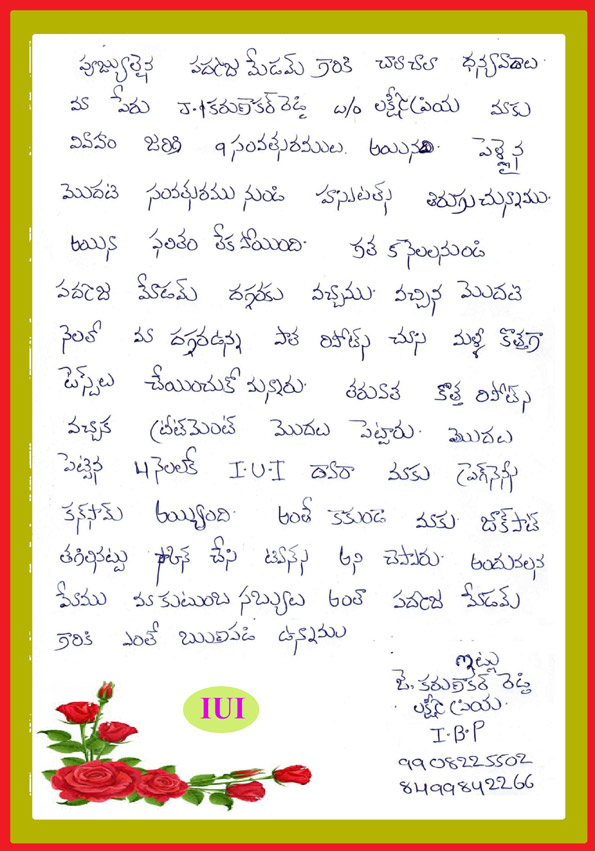 పూజ్యులైన పద్మజ మేడమ్ గారికి చాలా చాలా ధన్యవాదాలు.
మా పేరు J. కరుణాకర్ రెడ్డి w/o లక్ష్మీప్రియ మాకు
వివాహం జరిగి 9 సంవత్సరములు. అయినది. పెళ్ళైన
మొదటి సంవత్సరము నుండి హాస్పిటల్స్ తిరుగుచున్నాము.
అయిన ఫలితం లేక పోయింది. గత 5 నెలలనుండి
పద్మజ మేడమ్ దగ్గరకు వచ్చాము. వచ్చిన మొదటి
నెలలో మా దగ్గరఉన్న పాత రిపోర్ట్స్ చూసి మళ్ళీ కొత్తగా
టెస్ట్‌లు చేయించుకోమన్నారు. తరువాత కొత్త రిపోర్ట్స్
వచ్చాక ట్రీట్‌మెంట్ మొదలు పెట్టారు. మొదలు
పెట్టిన 4 నెలలకే I.U.I ద్వారా మాకు ప్రెగ్నెన్సీ
కన్‌ఫామ్ అయ్యింది. అంతే కాకుండా మాకు జాక్‌పాట్
తగిలినట్టు స్కానిన్ చేసి ట్విన్స్ అని చెప్పారు. అందువలన
మేము మా కుటుంబ సభ్యులు అంతా పద్మజ మేడమ్
గారికి ఎంతో ఋణపడి ఉన్నాము
ఇట్లు
జె. కరుణాకర్ రెడ్డి
లక్ష్మీప్రియ.
I.B.P
9908225502
8499842266
IUI